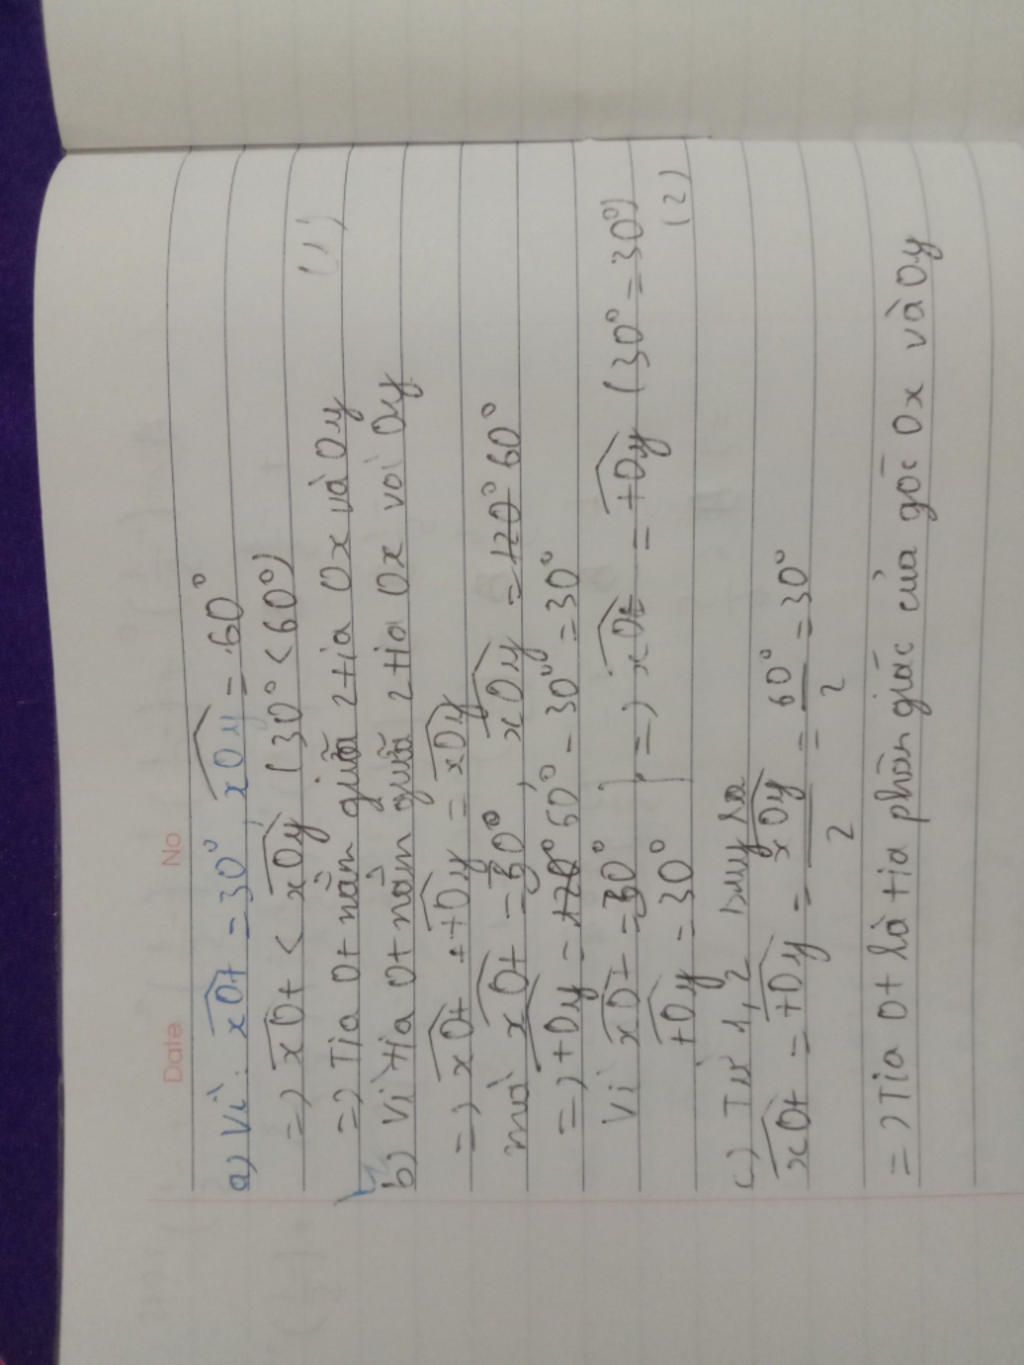 Date No
a) Vì: xOt = 30°, xOy = 60°
=) xOt < xOy (30° < 60°)
=) Tia Ot nằm giữa 2 tia Ox và Oy (1)
b) Vì tia Ot nằm giữa 2 tia Ox với Oy
=) xOt + tOy = xOy
mà xOt = 30°, xOy = 120° 60°
=) tOy = 120° 60° - 30° = 30°
Vì xOt = 30° } =) xOt = tOy (30° = 30°)
tOy = 30° (2)
c) Từ 1, 2 suy ra
xOt = tOy = xOy/2 = 60°/2 = 30°
=) Tia Ot là tia phân giác của góc Ox và Oy